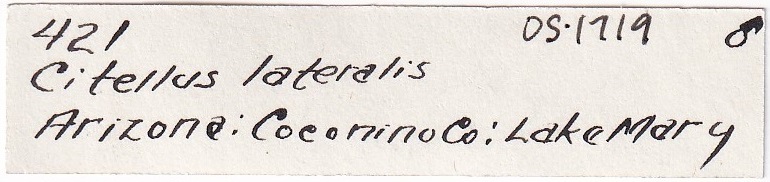 421 OS·1719 ♂
Citellus lateralis
Arizona: Coconino Co: Lake Mary